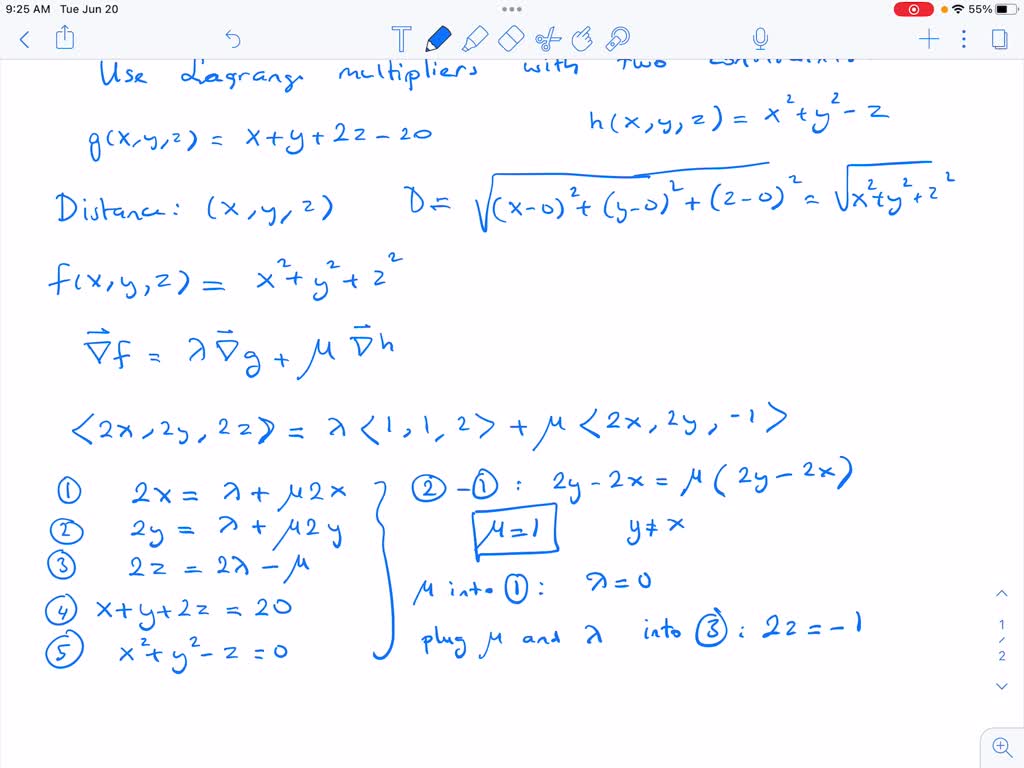 9:25 AM Tue Jun 20
55%
Use Lagrange multipliers with two
g(x,y,z) = x+y+2z-20
h(x,y,z) = x²+y²-z
Distance: (x,y,z) D= √(x-0)²+(y-0)²+(z-0)² = √x²+y²+z²
f(x,y,z) = x²+y²+z²
∇⃗f = λ∇⃗g + μ∇⃗h
<2x,2y,2z> = λ<1,1,2> + μ<2x,2y,-1>
① 2x = λ+μ2x
② 2y = λ+μ2y
③ 2z = 2λ-μ
④ x+y+2z = 20
⑤ x²+y²-z =0
②-①: 2y-2x = μ(2y-2x)
μ=1 y≠x
μ into ①: λ=0
plug μ and λ into ③: 2z=-1
1
/
2